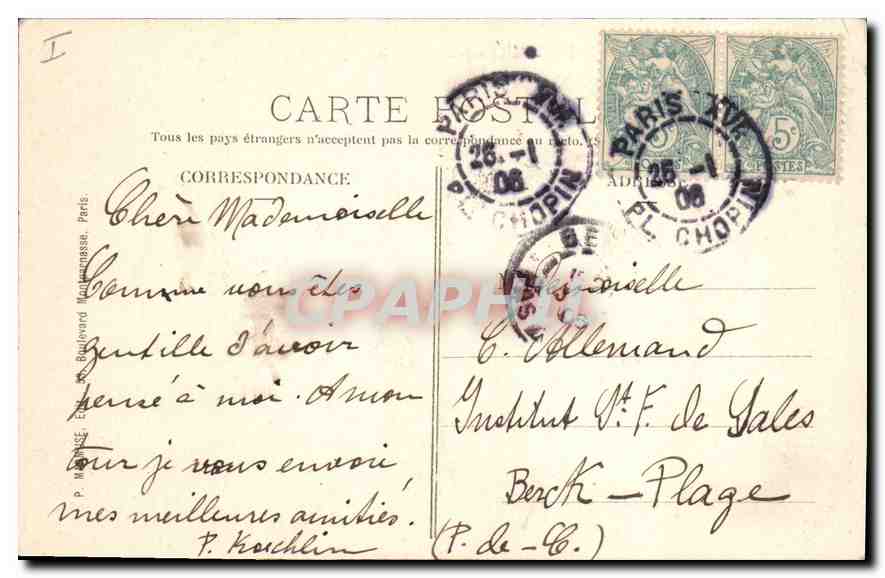 I
CARTE POSTALE
Tous les pays étrangers n'acceptent pas la correspondance au recto.
CORRESPONDANCE
ADRESSE
PARIS XVI
25 -1
06
PL. CHOPIN
PARIS XVI
25 -1
06
PL. CHOPIN
5c
POSTES
Chère Mademoiselle
Comme vous êtes
gentille d'avoir
pensé à moi. A mon
tour je vous envoie
mes meilleures amitiés.
P. Koechlin
Mademoiselle
C. Allemand
Institut St. F. de Sales
Berck-Plage
(P.-de-C.)
Boulevard Montparnasse, Paris.
CPAPHIL